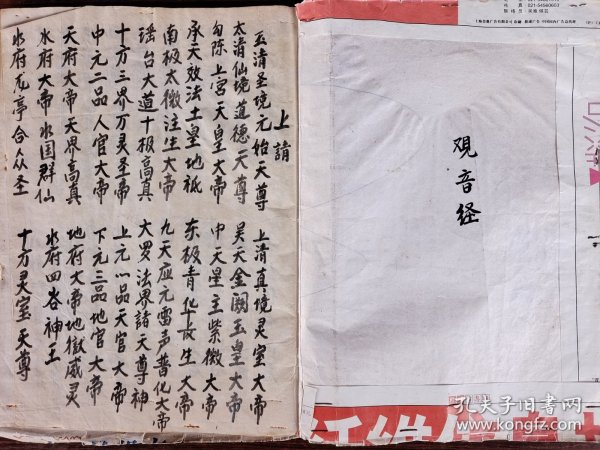 上請
玉清圣境元始天尊 上清真境灵宝大帝
太清仙境道德天尊 昊天金阙玉皇大帝
勾陈上宫天皇大帝 中天星主紫微大帝
承天效法土皇地祗 东极青华长生大帝
南极太微注生大帝 九天应元雷声普化大帝
瑶台大道十极高真 大罗法界諸天尊神
十方三界万灵圣帝 上元一品天官大帝
中元二品人官大帝 下元三品地官大帝
天府大帝天界高真 地府大帝地獄威灵
水府大帝水国群仙 水府四眷神王
水府龙亭合众圣 十方灵宝天尊
観音経
021-54560603
孔夫子旧书网
www.kongfz.com